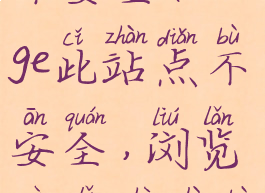 cǐ zhàn diǎn bù
ge此站点不
ān quán liú lǎn
安全，浏览